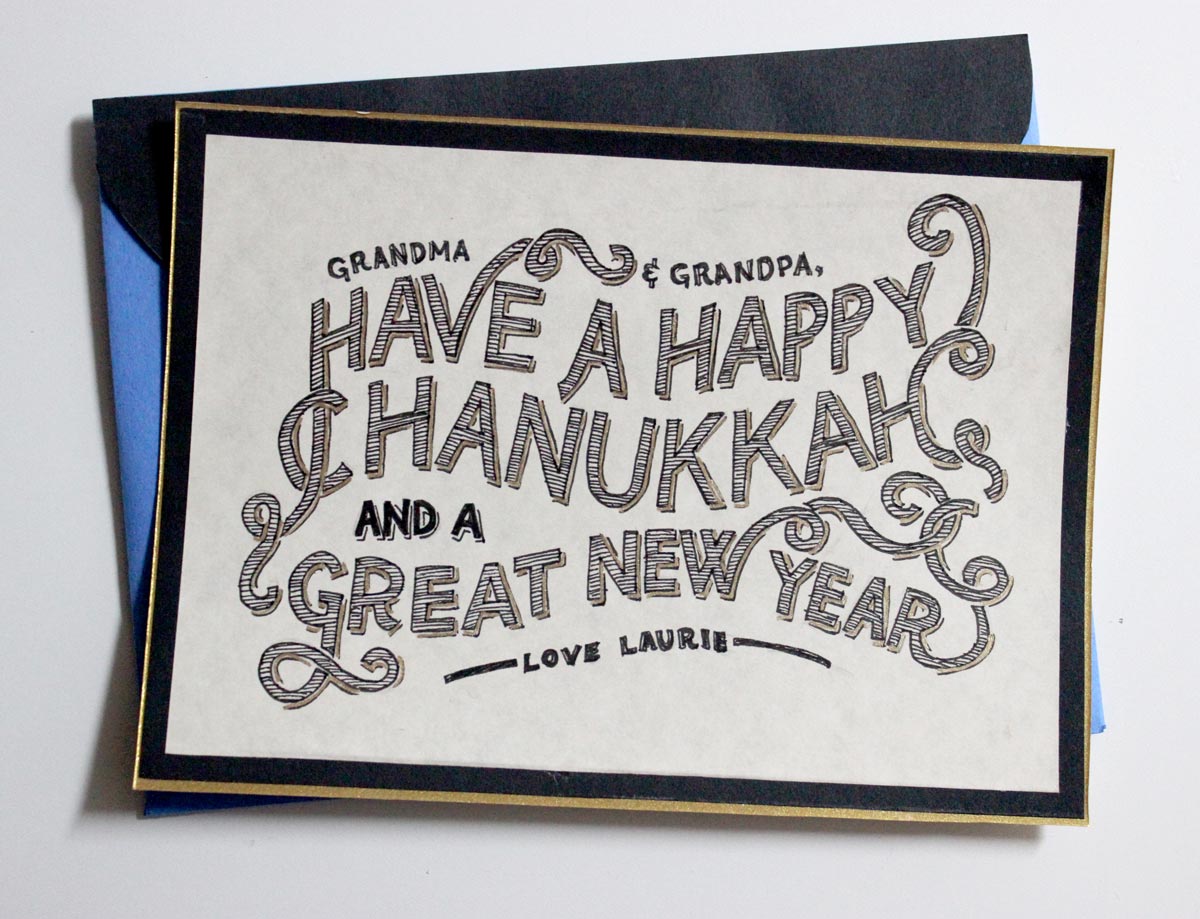 GRANDMA & GRANDPA,
HAVE A HAPPY
CHANUKKAH
AND A
GREAT NEW YEAR
LOVE LAURIE